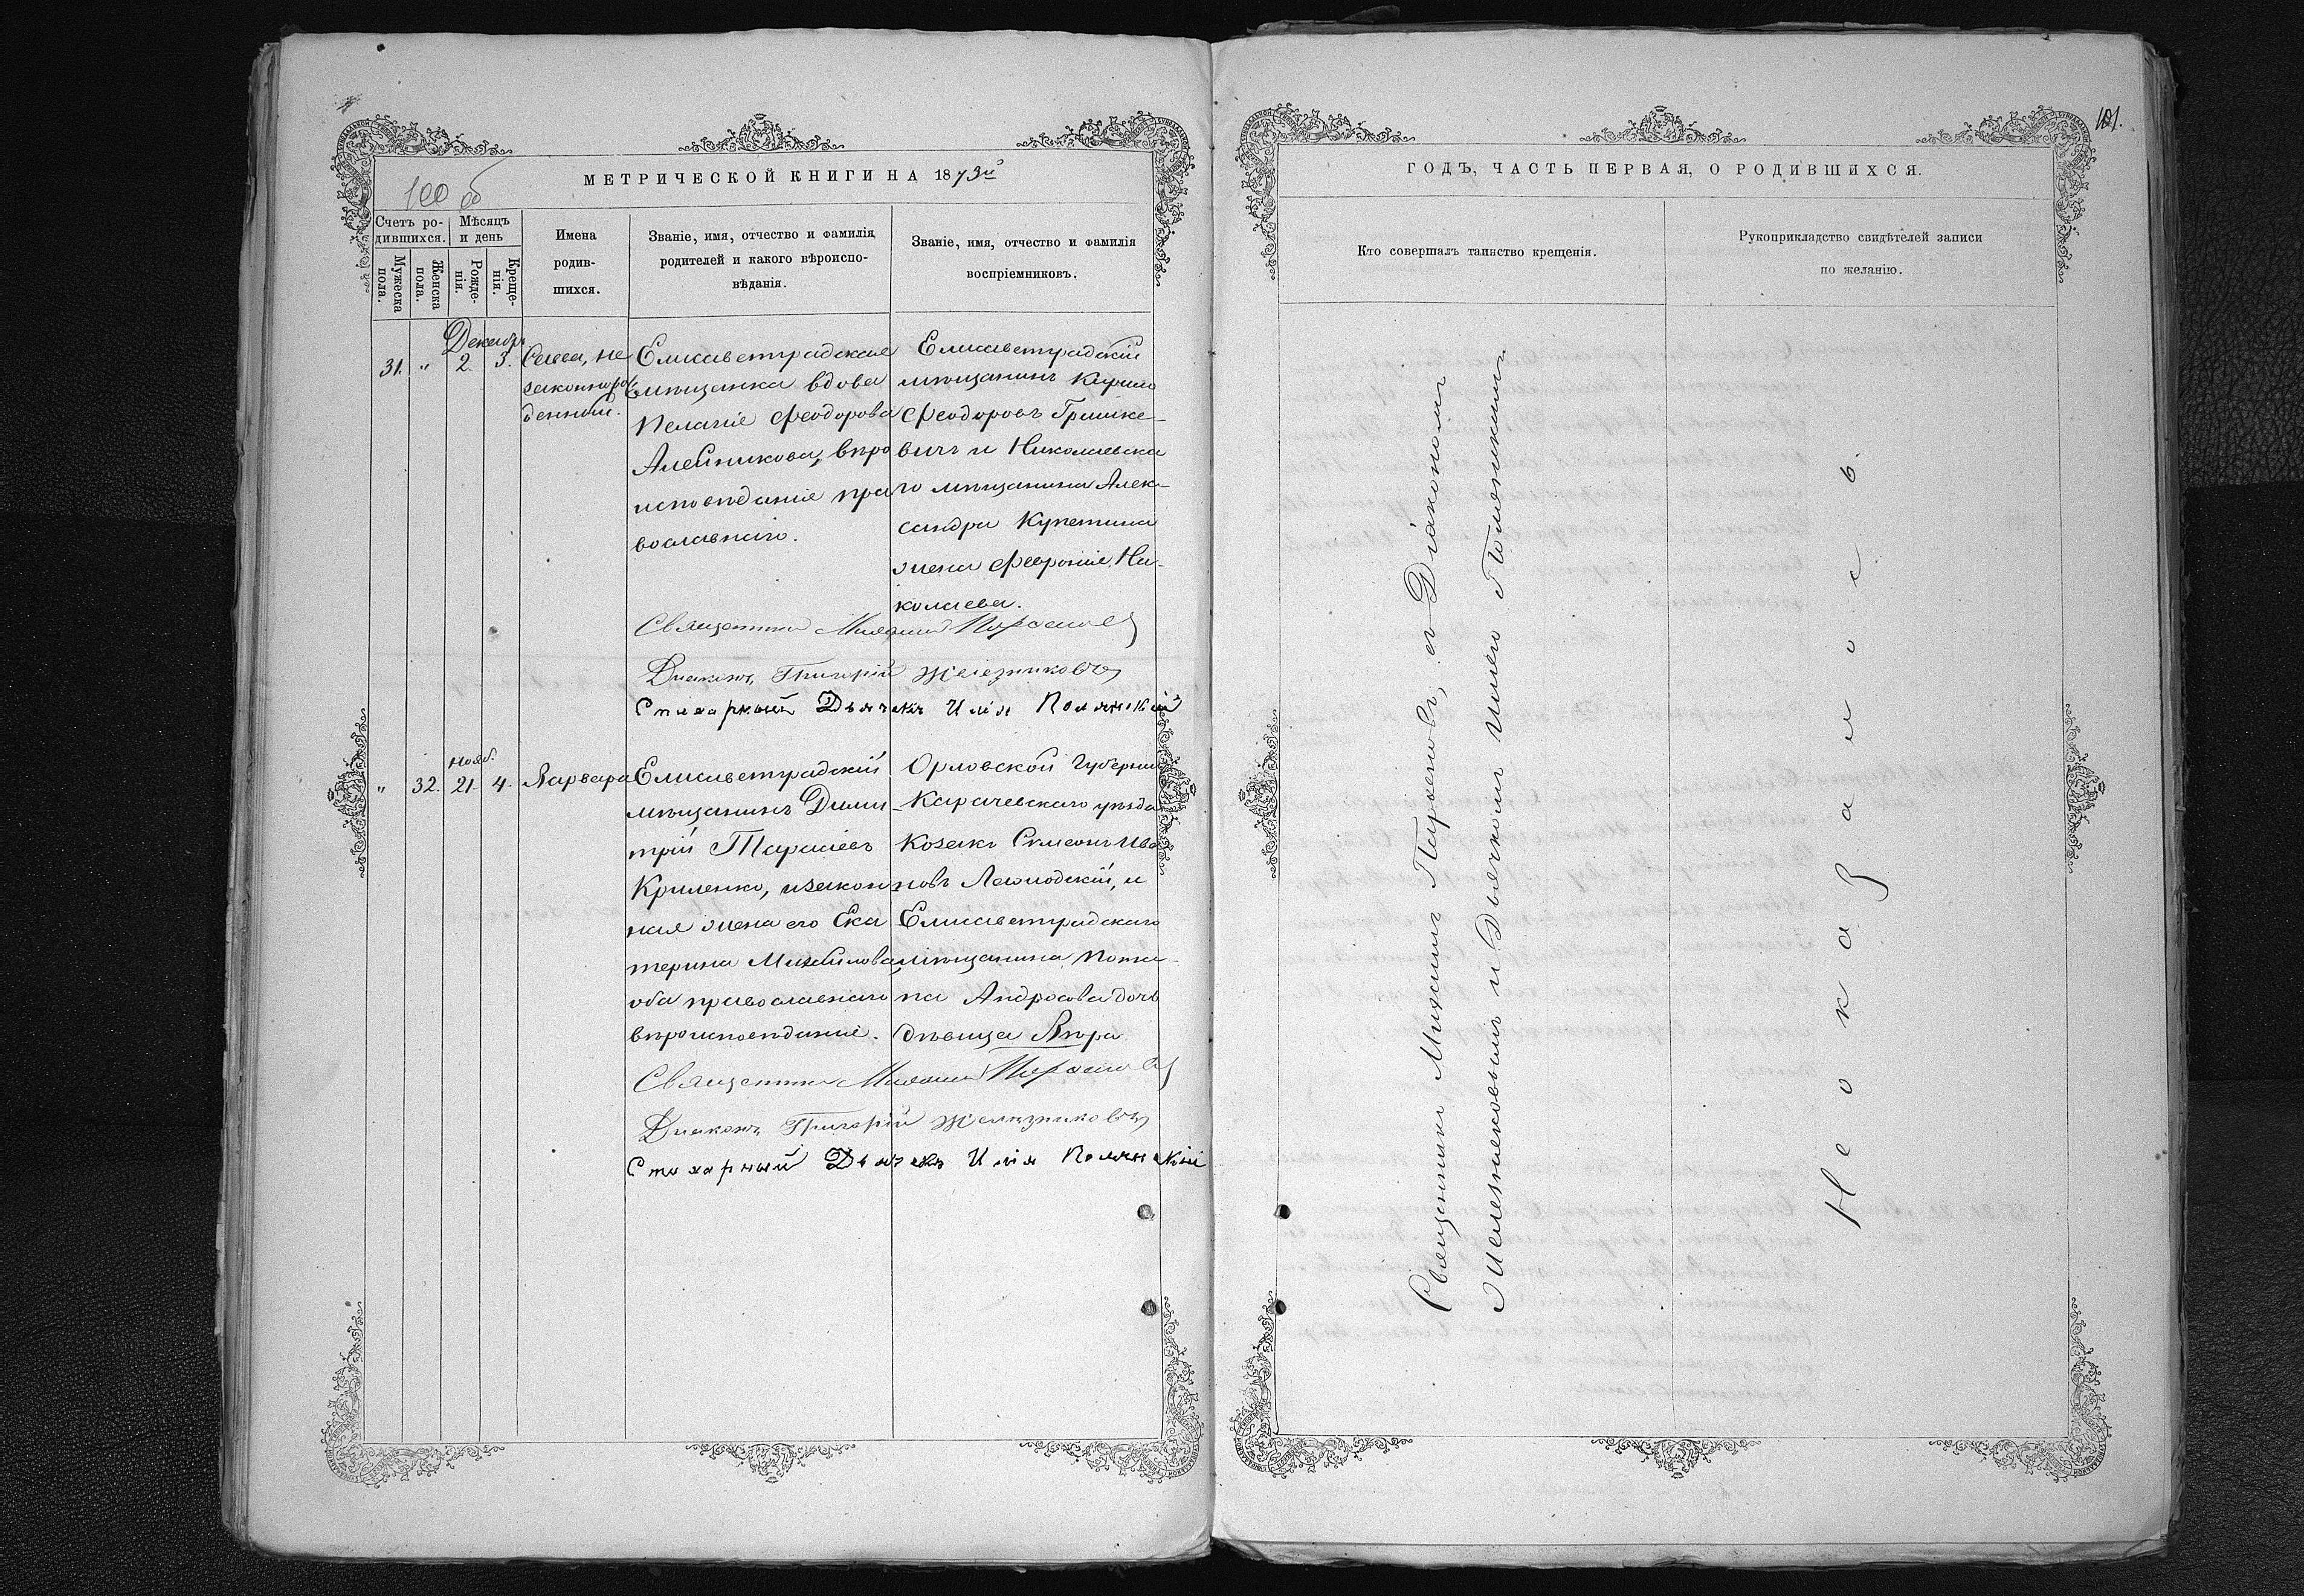 100 об
МЕТРИЧЕСКОЙ КНИГИ НА 1873й
Счетъ ро-
дившихся.
Мѣсяцъ
и день
Мужеска
пола.
Женска
пола.
Рожде-
нія.
Креще-
нія.
Имена
родив-
шихся.
Званіе, имя, отчество и фамилія
родителей и какого вѣроиспо-
вѣданія.
Званіе, имя, отчество и фамилія
воспріемниковъ.
Декабрь
31. " 2. 3. Савва, не
законнорож
денный.
Елисаветградская
мѣщанка вдова
Пелагія Феодорова
Алейникова, вѣро
исповѣданія пра
вославнаго.
Елисаветградскій
мѣщанинъ Кирило
Феодоровъ Гришке-
вичъ и Николаевска
го мѣщанина Алек-
сандра
жена Феvронія Ни-
колаева.
Священникъ Михаилъ
Диаконъ Григорій Железняковъ
Стихарный Дьячекъ Илія Полянскій
Нояб.
" 32. 21. 4. Варвара
Елисаветградскій
мѣщанинъ Дими-
трій Тарасіевъ
Криленко, и закон
ная жена его Ека
терина Михайлова,
оба православнаго
вѣроисповѣданія.
Орловской Губерніи
Карачевскаго уѣзда
Козакъ Симеонъ Ива
новъ и
Елисаветградскаго
мѣщанина Пота-
па Андросова дочь
дѣвица Вѣра.
Священникъ Михаилъ
Диаконъ Григорій Желѣзняковъ
Стихарный Дьячекъ Илія Полянскій
101.
ГОДЪ, ЧАСТЬ ПЕРВАЯ, О РОДИВШИХСЯ.
Кто совершалъ таинство крещенія.
Рукоприкладство свидѣтелей записи
по желанію.
Священникъ Михаилъ съ Діакономъ
Железняковымъ и Дьячкомъ Иліею Полянскимъ
Не оказалось.